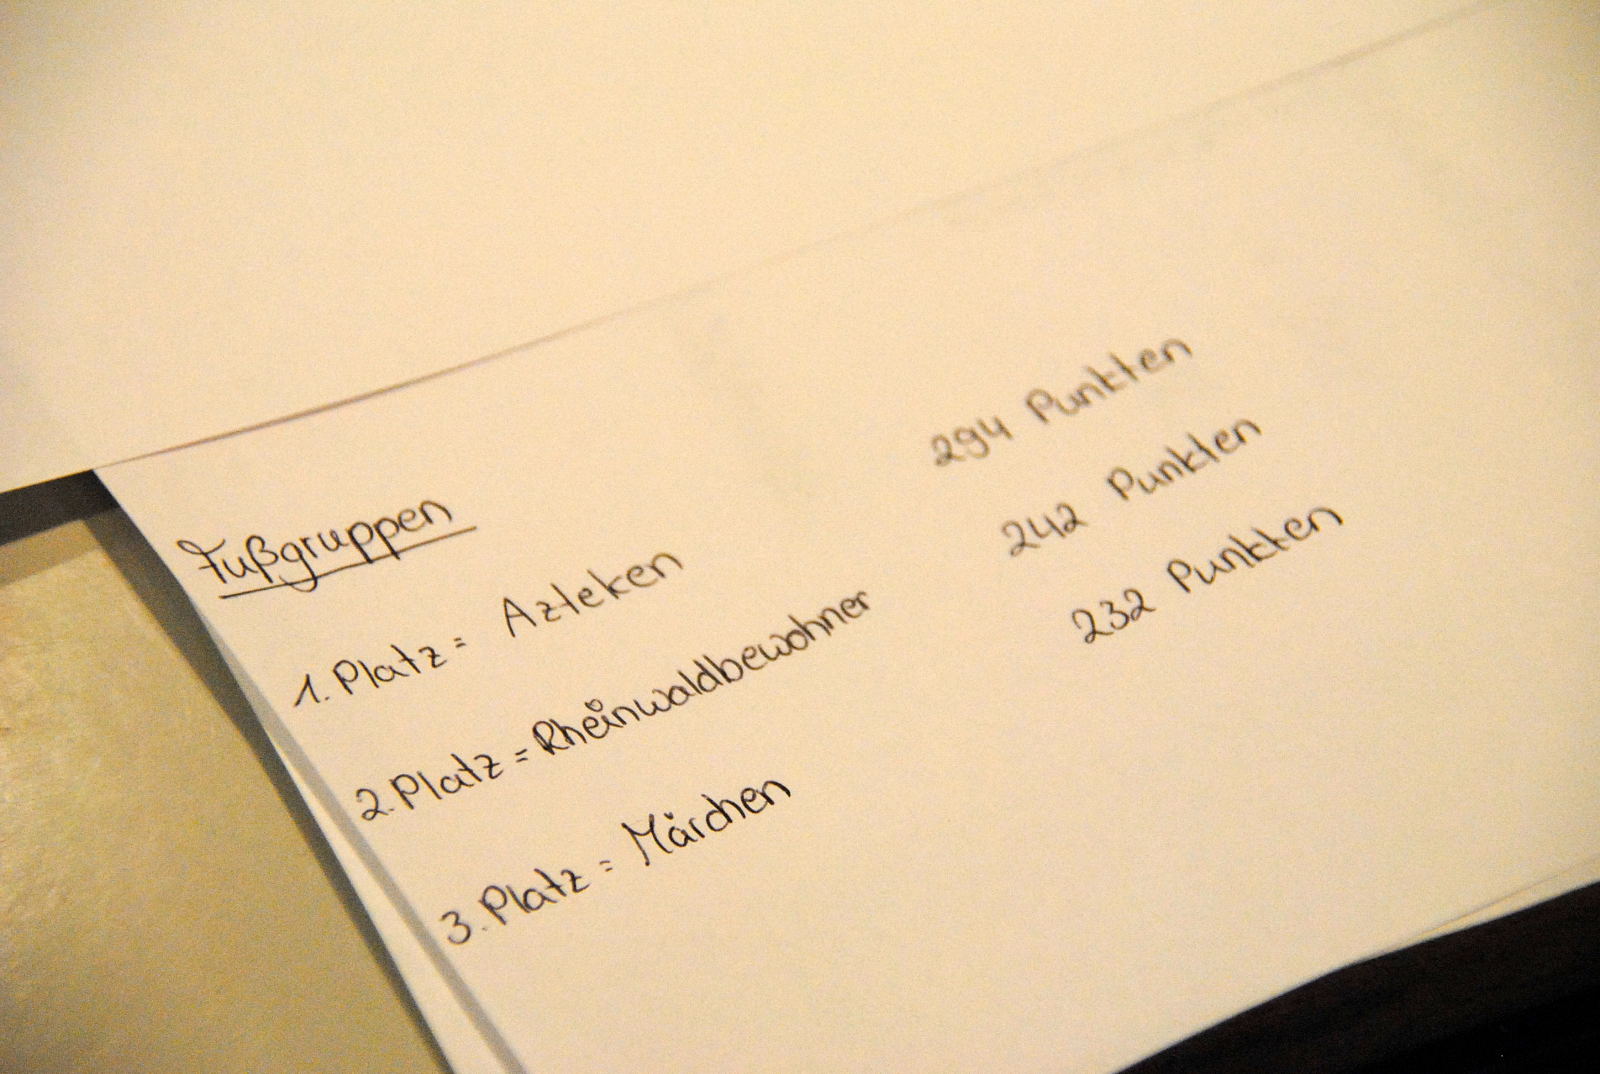 Fußgruppen
1. Platz = Azteken 294 Punkten
2. Platz = Rheinwaldbewohner 242 Punkten
3. Platz = Märchen 232 Punkten